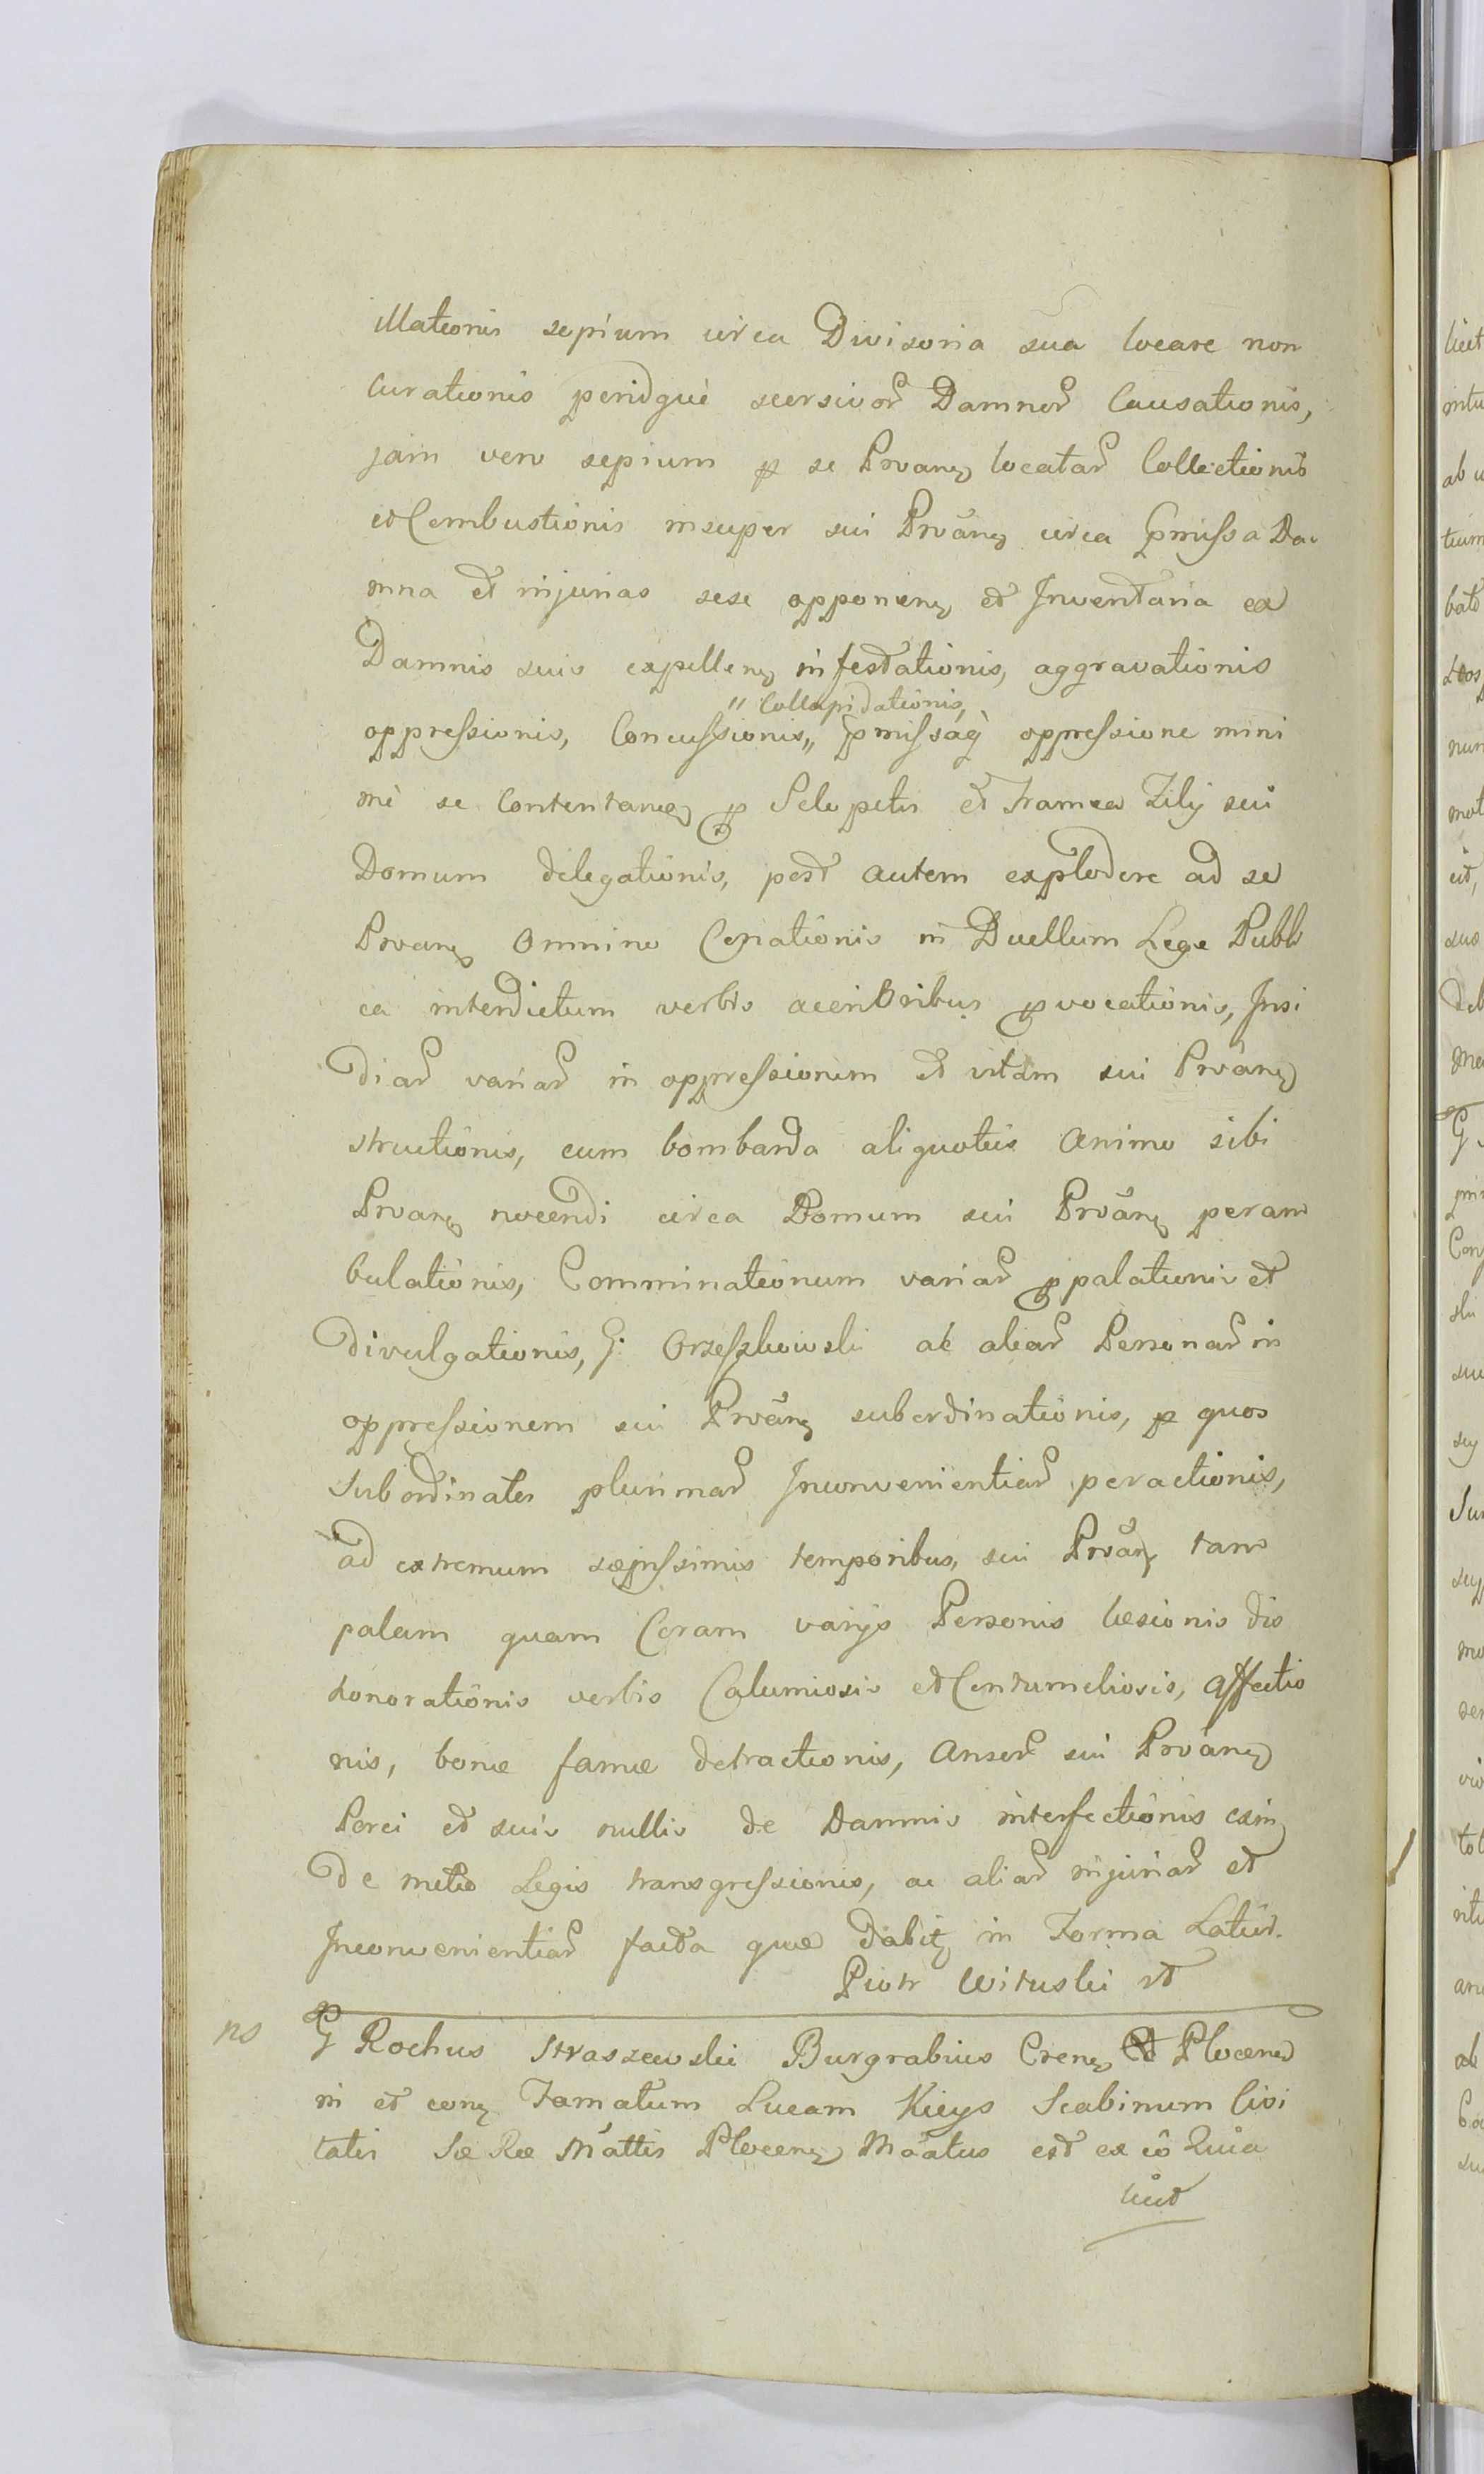 illationis sepium circa Divisoria sua locare non
Curationis peridque scersivor Damnor Causationis,
jam vero sepium p se Prvane locatar Collectionis
et Combustionis insuper sui Prvane circa pmissa Da-
mna et injurias sese opponene et Inventaria ex
Damnis suis expellene infestationis, aggravationis
" Collapidationis,
oppressionis, Concussionis,, pmissaq oppressione mini
me se Contentane p Sclopetis et framea Filij sui
Domum delegationis, post autem explodere ad se
Prvane omnino Conationis in Duellum Lege Publi
ca interdictum verbis acerbioribus pvocationis, Insi
diar variar in oppressionem et vitam sui Prvane
structionis, cum bombarda aliquoties animo sibi
Prvane nocendi circa Domum sui Prvane peram
bulationis, Comminationum variar ppalationis et
divulgationis, G. Orzeszkowski ac aliar Personar in
oppressionem sui Prvane subordinationis, p quos
Subordinatos plurimar Inconvenientiar peractionis,
ad extremum sæpissimis temporibus, sui Prvane tam
palam quam Coram varijs Personis læsionis dis
honorationis verbis Calumiosis et Contumeliosis, affectio
nis, bonæ famæ detractionis, Anser sui Prvane
Porci et suis nullis de Damnis interfectionis exin
de metio Legis transgressionis, ac aliar injuriar et
Inconvenientiar facta quæ dabit in Forma Latiu.
Piotr Wituski
ns
G Rochus Straszewski Burgrabius Crene Plocen
in et cone Famatum Lucam Kieys Scabinum Civi
tatis Sæ Ræ Mattis Plocene Maatus est ex eo Quia
licet